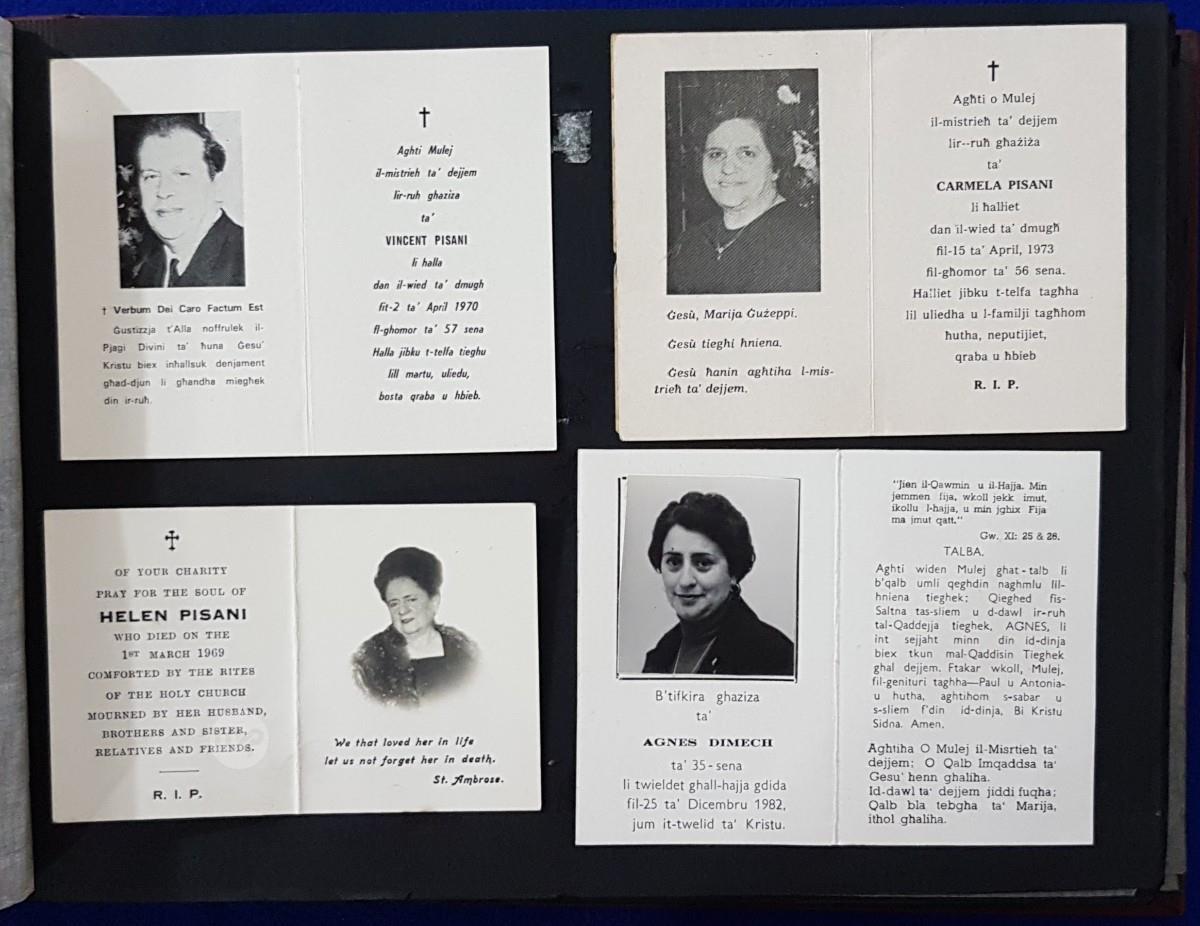 † Verbum Dei Caro Factum Est
Ġustizzja t'Alla noffrulek il-
Pjagi Divini ta' ħuna Ġesu'
Kristu biex inħallsuk denjament
għad-djun li għandha miegħek
din ir-ruħ.
†
Aghti Mulej
il-mistrieh ta' dejjem
lir-ruh ghaziza
ta'
VINCENT PISANI
li halla
dan il-wied ta' dmugh
fit-2 ta' April 1970
fl-ghomor ta' 57 sena
Halla jibku t-telfa tieghu
lill martu, uliedu,
bosta qraba u hbieb.
Ġesù, Marija Ġużeppi.
Ġesù tiegħi ħniena.
Ġesù ħanin agħtiha l-mis-
trieħ ta' dejjem.
†
Agħti o Mulej
il-mistrieħ ta' dejjem
lir--ruħ għażiża
ta'
CARMELA PISANI
li ħalliet
dan il-wied ta' dmugħ
fil-15 ta' April, 1973
fil-għomor ta' 56 sena.
Ħalliet jibku t-telfa tagħha
lil uliedha u l-familji tagħhom
ħutha, neputijiet,
qraba u ħbieb
R. I. P.
OF YOUR CHARITY
PRAY FOR THE SOUL OF
HELEN PISANI
WHO DIED ON THE
1ST MARCH 1969
COMFORTED BY THE RITES
OF THE HOLY CHURCH
MOURNED BY HER HUSBAND,
BROTHERS AND SISTER,
RELATIVES AND FRIENDS.
R. I. P.
We that loved her in life
let us not forget her in death.
St. Ambrose.
B'tifkira ghaziza
ta'
AGNES DIMECH
ta' 35-sena
li twieldet ghall-hajja gdida
fil-25 ta' Dicembru 1982,
jum it-twelid ta' Kristu.
"Jien il-Qawmin u il-Hajja. Min
jemmen fija, wkoll jekk imut,
ikollu l-hajja, u min jghix Fija
ma jmut qatt."
Gw. XI: 25 & 26.
TALBA.
Aghti widen Mulej ghat-talb li
b'qalb umli qeghdin naghmlu lil-
hniena tieghek; Qieghed fis-
Saltna tas-sliem u d-dawl ir-ruh
tal-Qaddejja tieghek, AGNES, li
int sejjaht minn din id-dinja
biex tkun mal-Qaddisin Tieghek
ghal dejjem. Ftakar wkoll, Mulej,
fil-genituri taghha—Paul u Antonia-
u hutha, aghtihom s-sabar u
s-sliem f'din id-dinja, Bi Kristu
Sidna. Amen.
Aghtiha O Mulej il-Misrtieh ta'
dejjem; O Qalb Imqaddsa ta'
Gesu' henn ghaliha.
Id-dawl ta' dejjem jiddi fuqha;
Qalb bla tebgha ta' Marija,
ithol ghaliha.